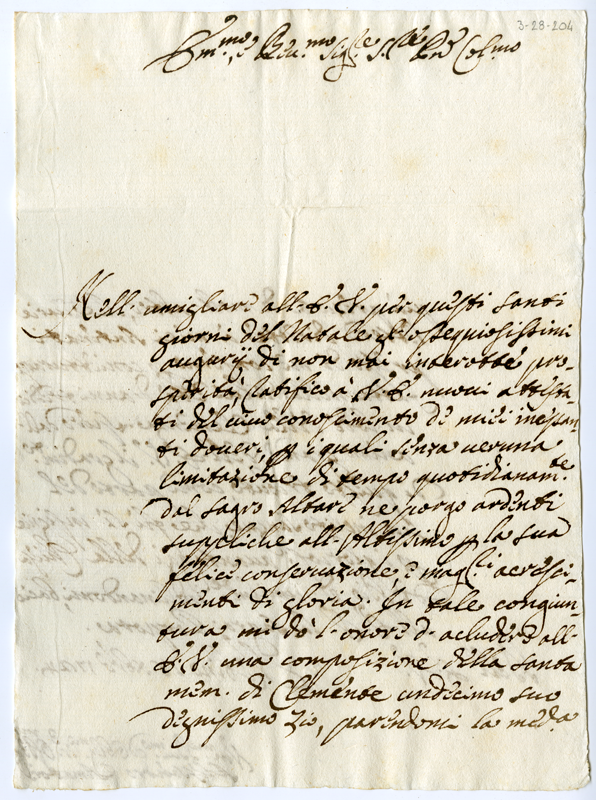 3-28-204
Em.mo, e Reu.mo Sig.re S.re Pne Col.mo
Nell' umigliare all' E. V. per questi santi
giorni del Natale gl' ossequiosissimi
augurij di non mai interotte pro-
sperità, ratifico à V. E. nuoui attesta-
ti del uiuo conoscimento de miei incessan-
ti doueri, p i quali senza ueruna
limitazione di tempo quotidianam.te
dal sagro Altare ne porgo ardenti
suppliche all' Altissimo p la sua
felice conseruazione, e magg.ri accresci-
menti di gloria. In tale congiun-
tura mi dò l' onore d' acludere all'
E. V. una composizione della santa
mem. di Clemente undecimo suo
degnissimo Zio, parendomi la med.a